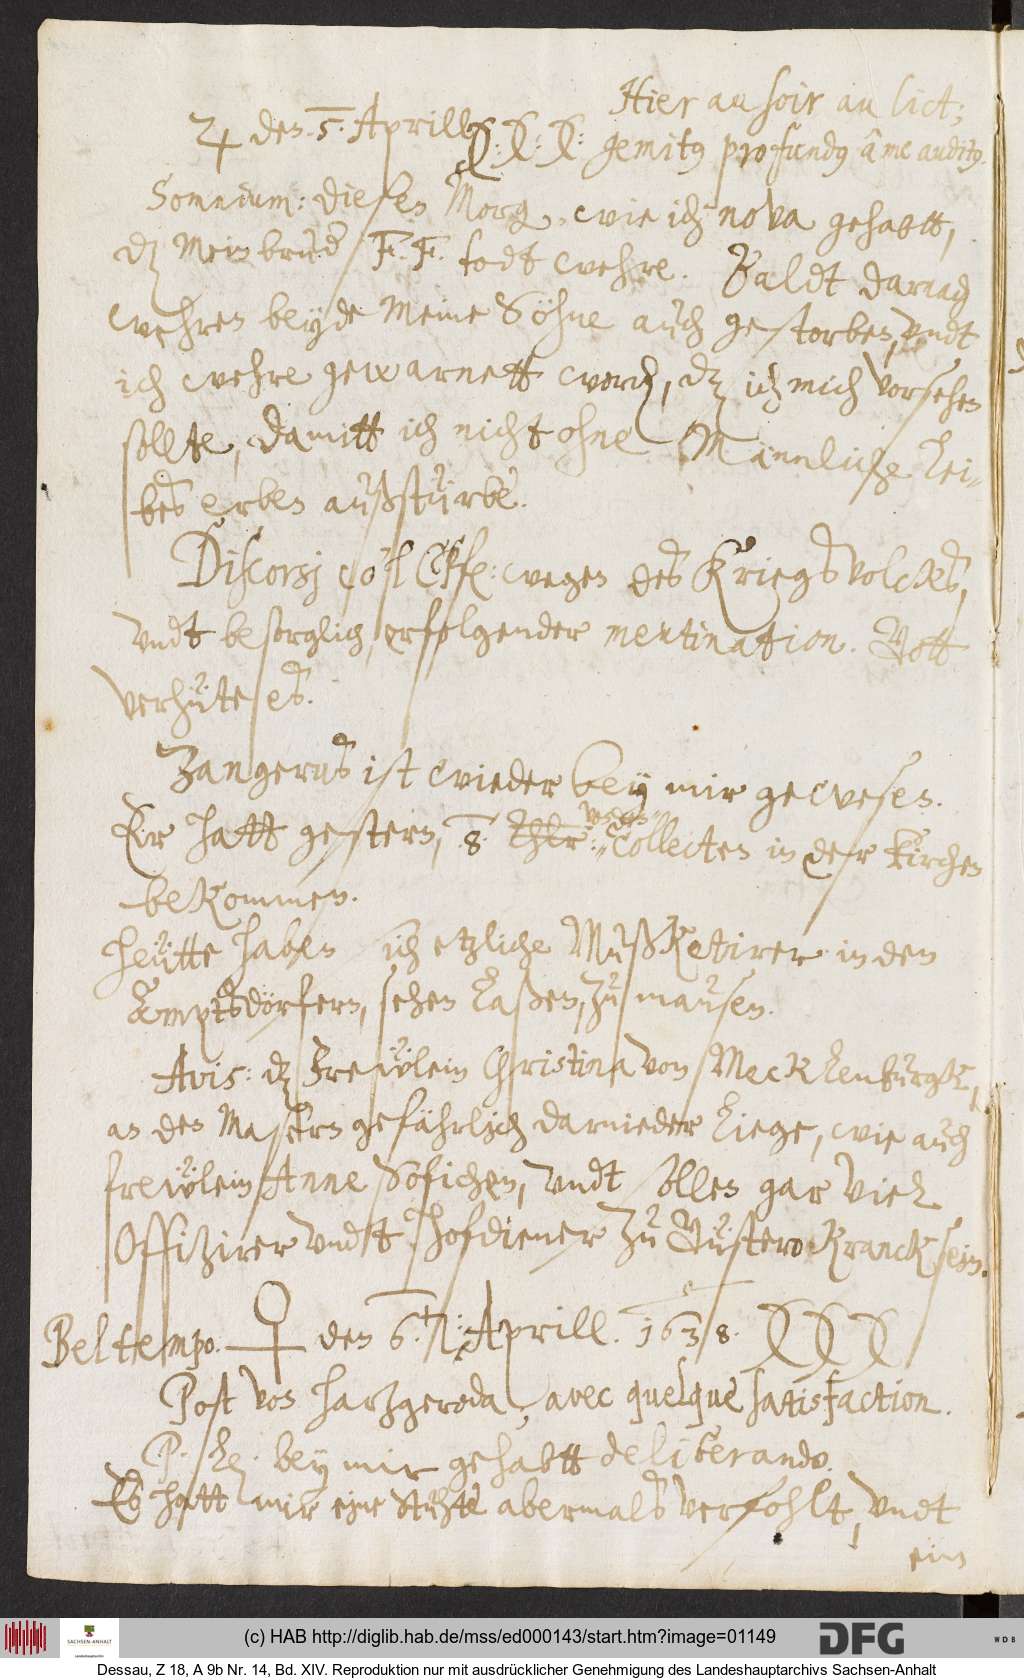 Hier au soir au lict;
♃ den. 5. Aprill. X: X: X: gemitus profundus à me auditus.
Somnium: diesen Morg, wie ich nova gehabtt,
dz Mein bruder F. F. todt wehre. Baldt darnach
wehren beyde Meine Söhne auch gestorben, vndt
ich wehre gewarnett word, dz ich mich vorsehen
sollte, damitt ich nicht ohne Männliche Lei-
bes erben außstürbe.
Discorsj wegen des Kriegsvolckes,
vndt besorglich erfolgender meutination. Gott
verhüte es.
Zangerus ist wieder bey mir gewesen.
Er hatt gestern, 8 Thlr: Collecten in der kirchen
bekommen.
Heütte haben sich etzliche Mußketirer in den
Amptsdörfern, sehen Laßen, zu mausen.
Avis: dz Freẅlein Christina von Meckhlenburgk,
an den Masern gefährlich darnieder Liege, wie auch
freẅlein Anne Sofichen, vndt sollen gar viel
Offizirer vndt Hofdiener zu Güstero Kranck sein.
Bel tempo. ♀ den 6. Aprill. 1638. XXX
Post von Hartzgeroda, avec quelque satisfaction.
P. bey mir gehabtt deliberando.
Es hatt mir eine Stuhte abermals verfohlt, vndt
ein
(c) HAB http://diglib.hab.de/mss/ed000143/start.htm?image=01149
SACHSEN-ANHALT
DFG
WDB
Dessau, Z 18, A 9b Nr. 14, Bd. XIV. Reproduktion nur mit ausdrücklicher Genehmigung des Landeshauptarchivs Sachsen-Anhalt